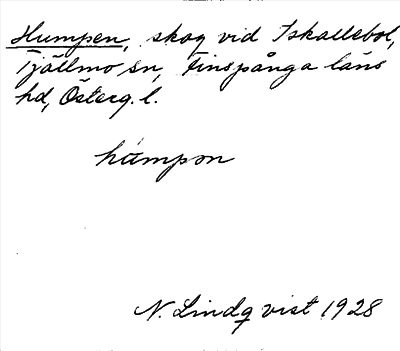 Humpen, skog vid Iskallebol,
Tjällmo sn, Finspånga läns
hd, Österg. l.
hu̇mpən
N. Lindqvist 1928